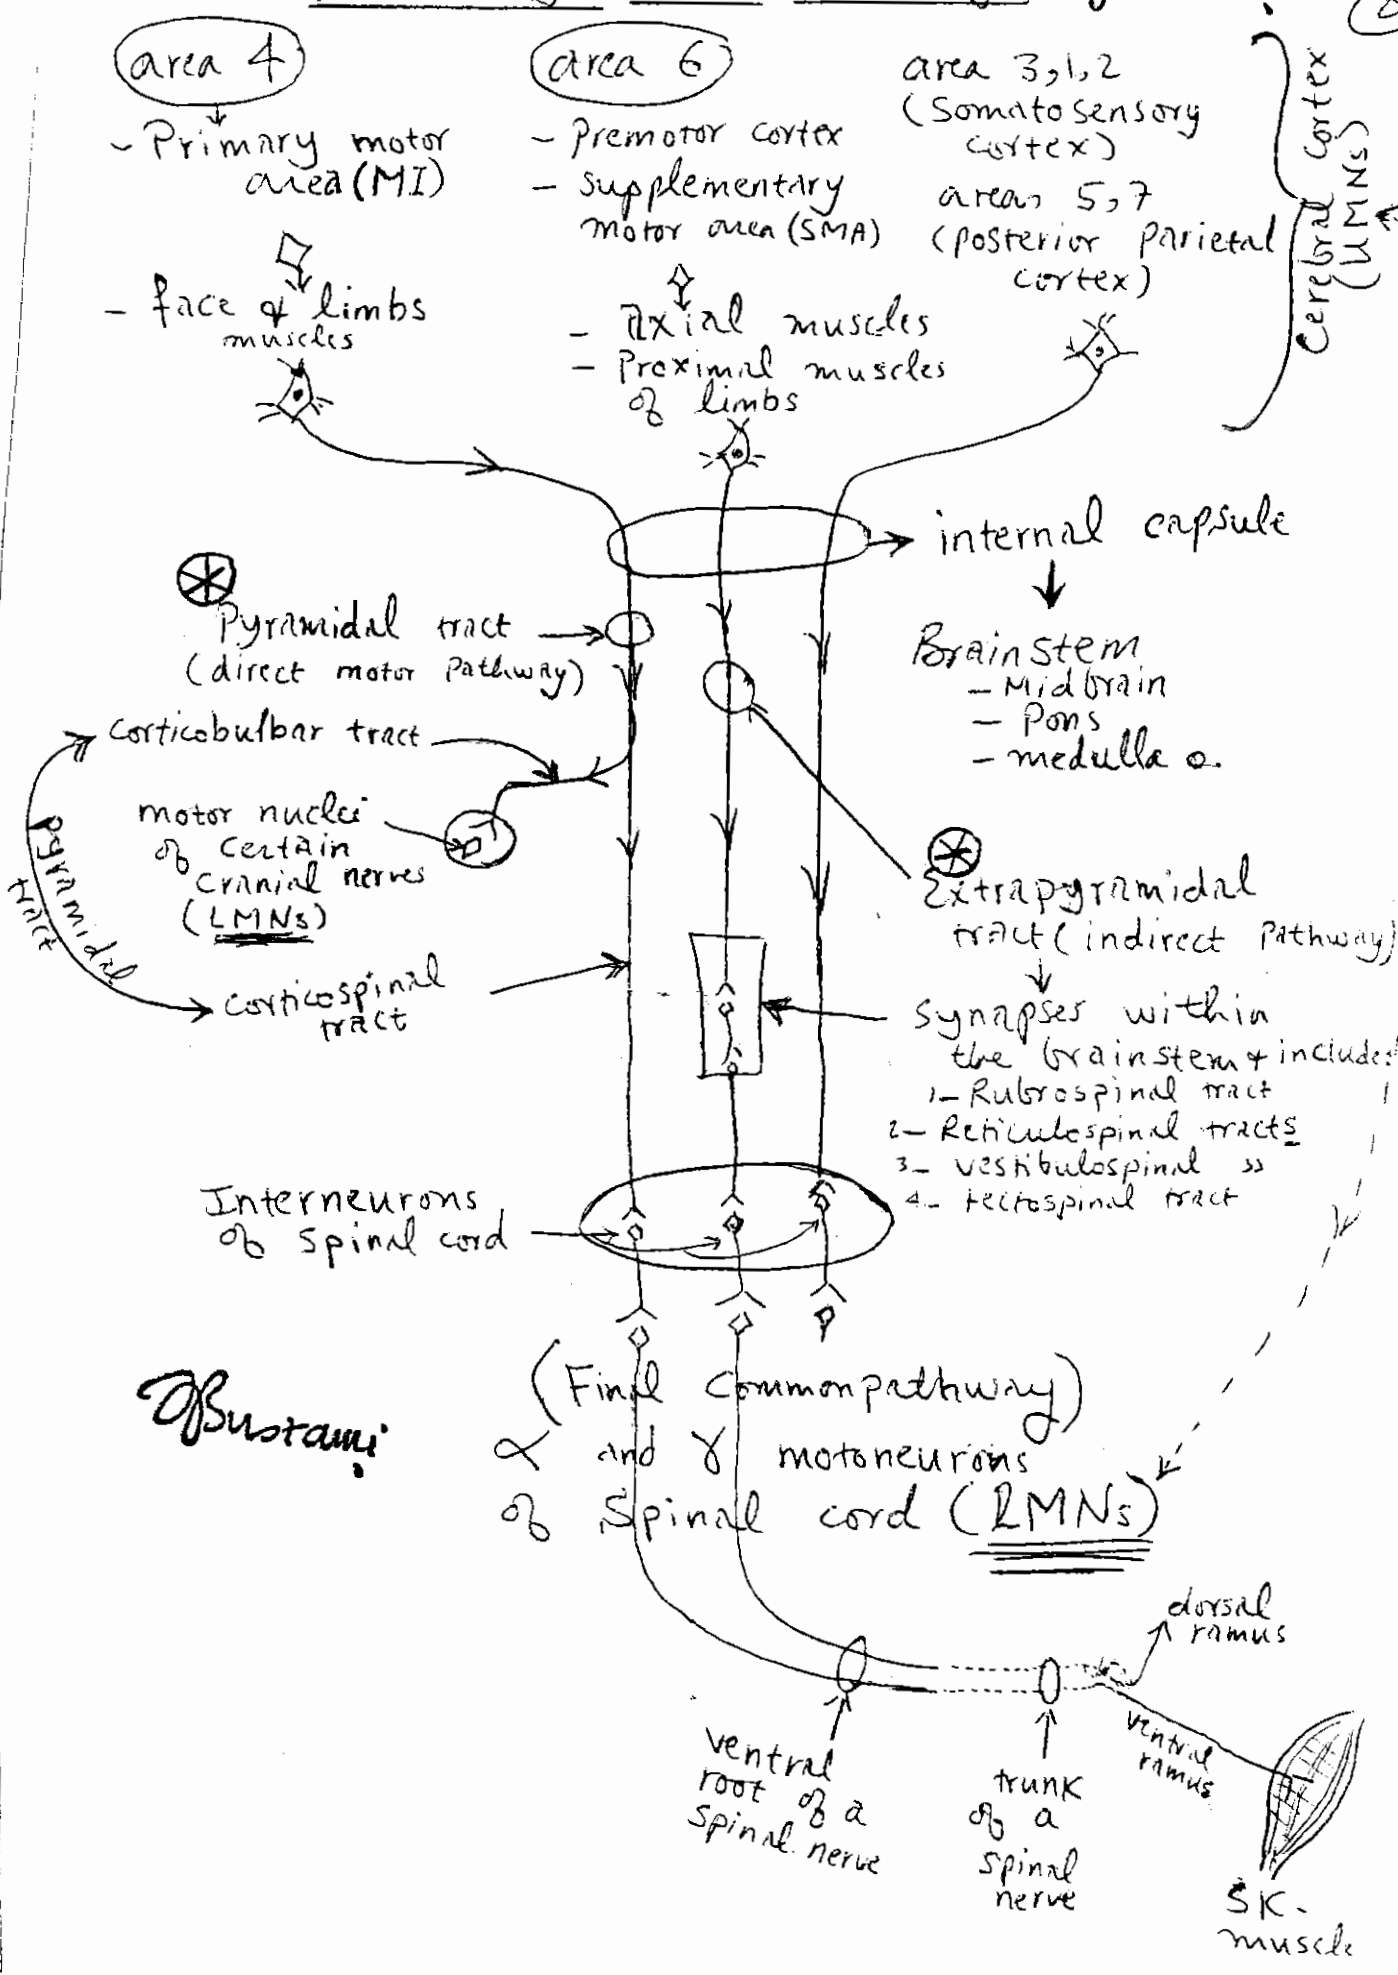 area 4
- Primary motor
area (MI)
- face & limbs
muscles
area 6
- Premotor cortex
- supplementary
motor area (SMA)
- Axial muscles
- Proximal muscles
of limbs
area 3,1,2
(Somatosensory
cortex)
areas 5,7
(posterior parietal
cortex)
Cerebral Cortex
(UMNs)
internal capsule
Brainstem
- Midbrain
- Pons
- medulla o.
Pyramidal tract
(direct motor Pathway)
corticobulbar tract
motor nuclei
of certain
cranial nerves
(LMNs)
pyramidal
tract
corticospinal
tract
Extrapyramidal
tract (indirect Pathway)
Synapses within
the brainstem & includes
1- Rubrospinal tract
2- Reticulospinal tracts
3- vestibulospinal »
4- tectospinal tract
Interneurons
of spinal cord
(Final Common pathway)
α and γ motoneurons
of Spinal cord (LMNs)
Bustami
dorsal
ramus
ventral
ramus
ventral
root of a
spinal nerve
trunk
of a
spinal
nerve
SK.
muscle